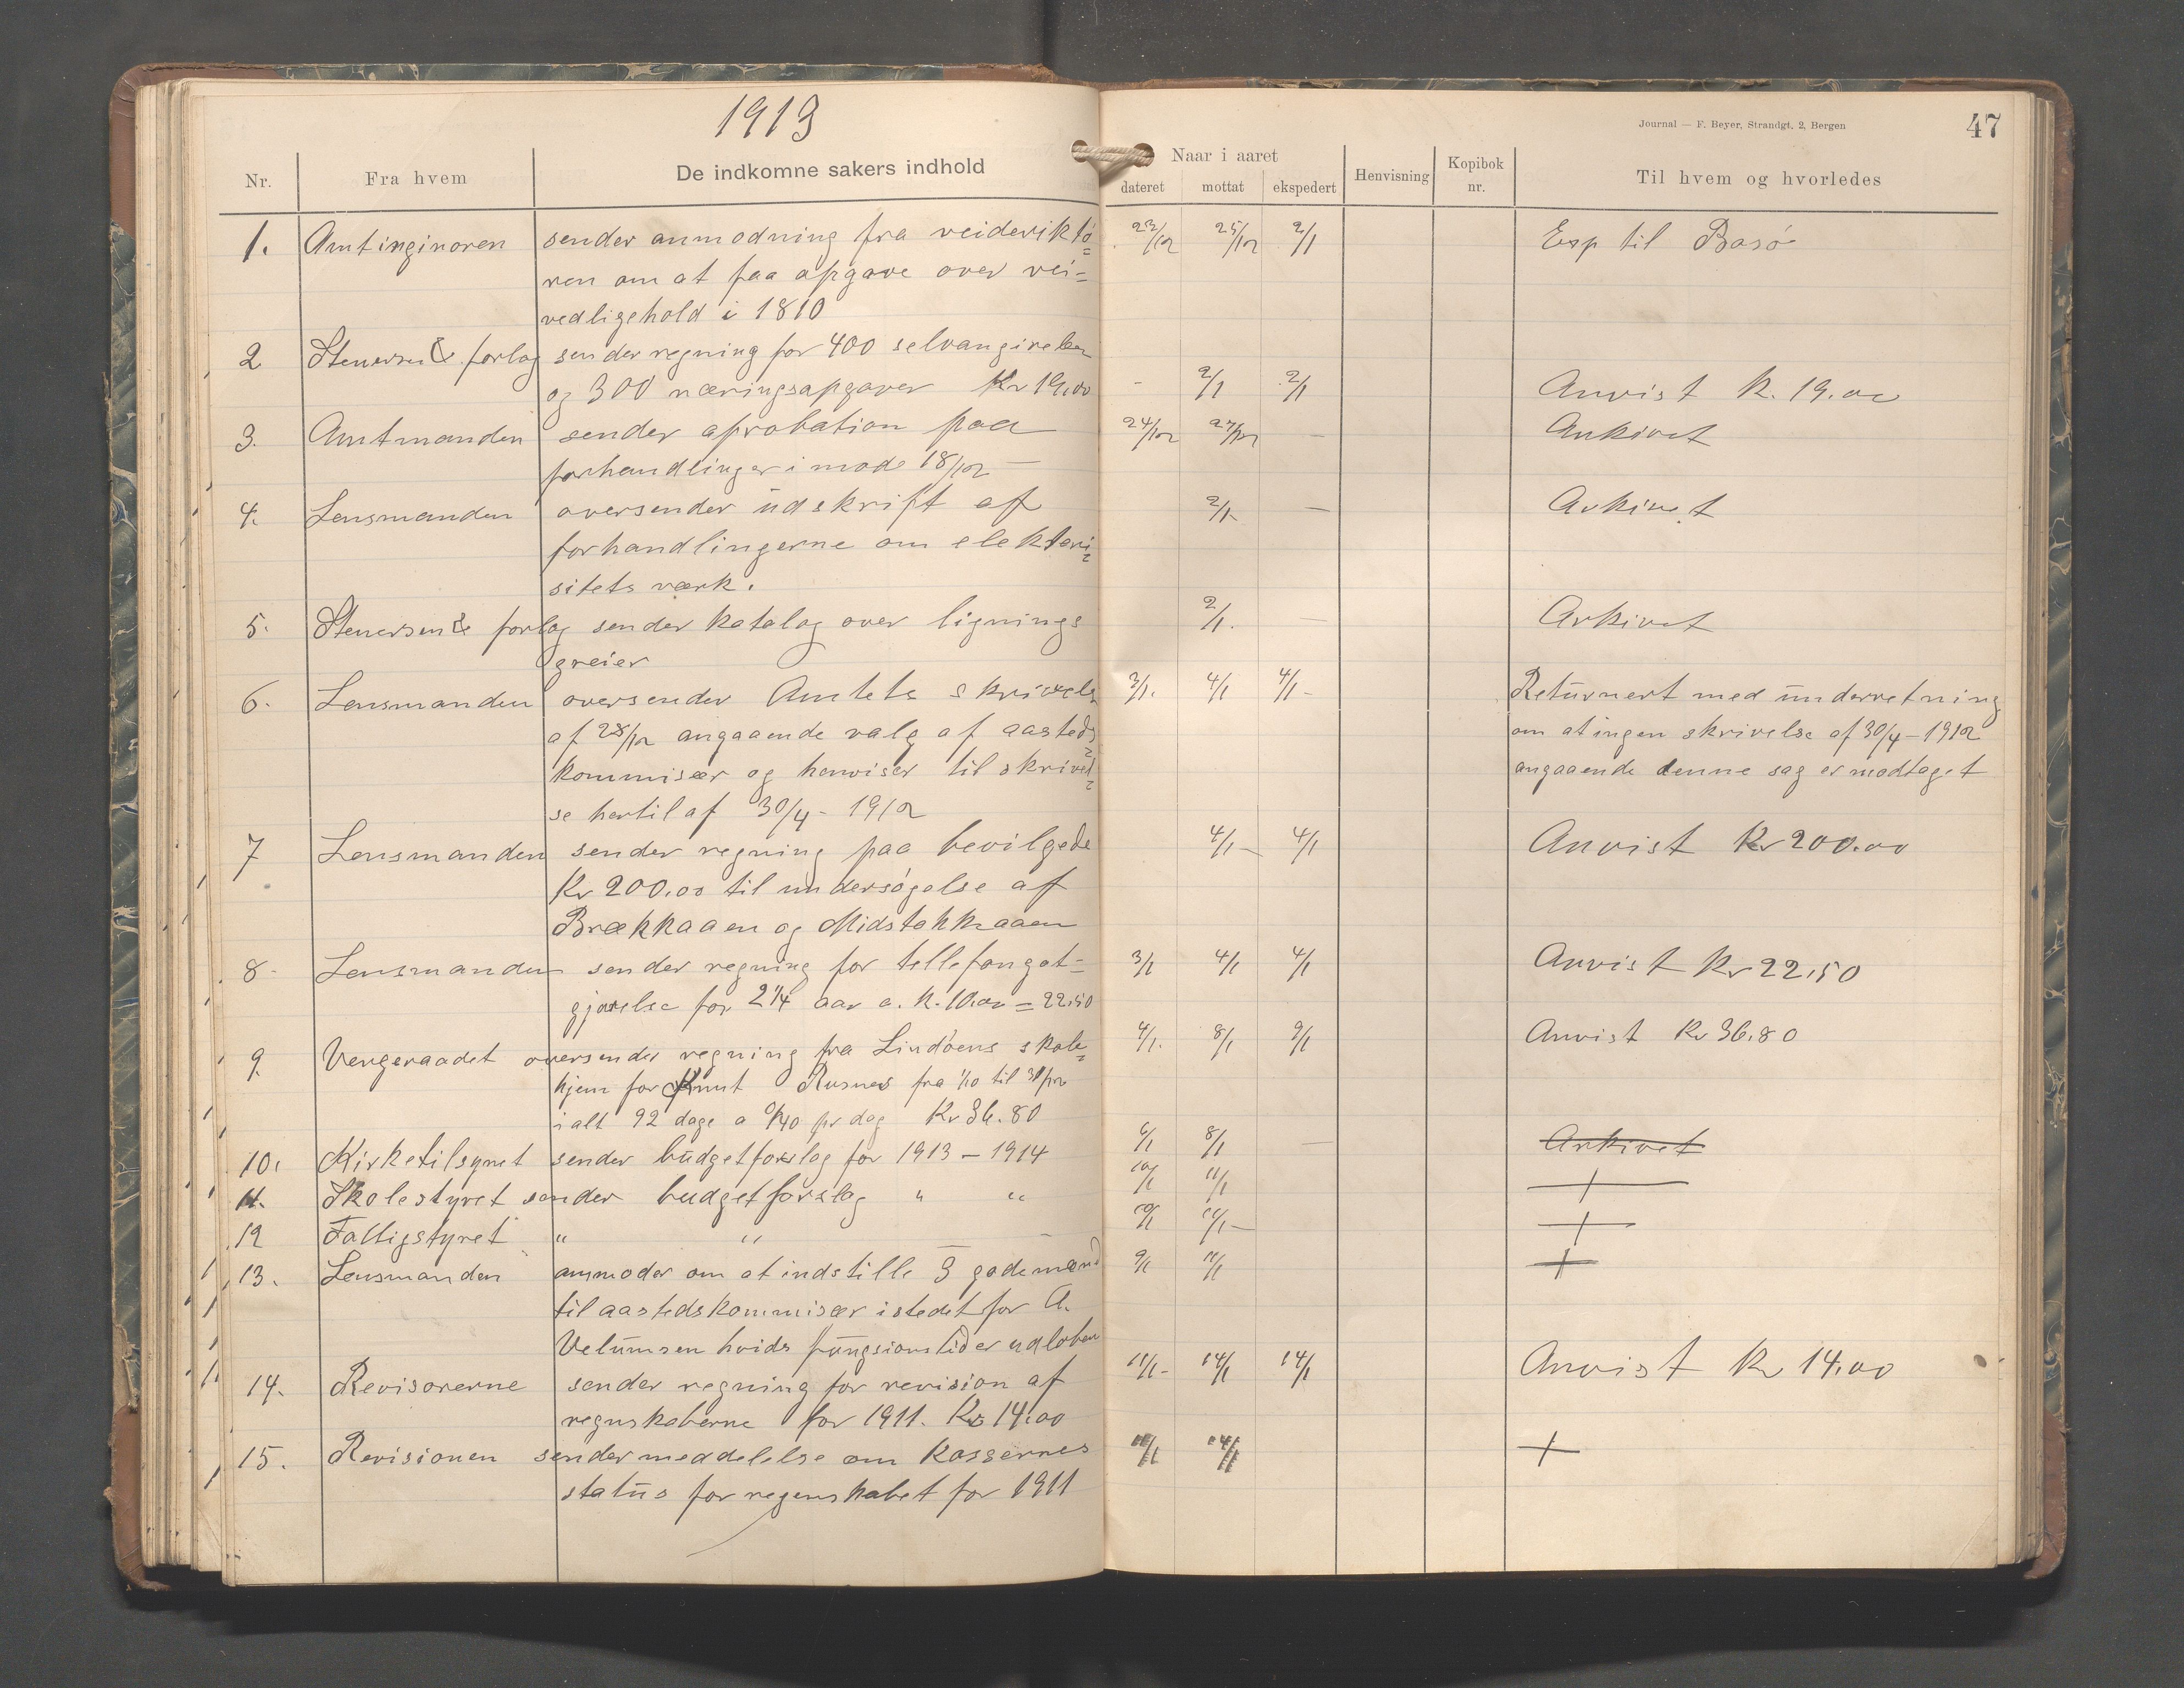 1913
Journal — F. Beyer, Strandgt. 2, Bergen
47
Nr. Fra hvem De indkomne sakers indhold Naar i aaret dateret mottat ekspedert Henvisning Kopibok nr. Til hvem og hvorledes
1. Amtinginøren sender anmodning fra veidirektø= 23/12 25/12 2/1 Exp til Basø
ren om at faa opgave over vei=
vedligehold i 1810
2 Stenersen & forlag sender regning for 400 selvangivelser
og 300 næringsopgaver Kr 19,00 - 2/1 2/1 Anvist K. 19.00
3. Amtmanden sender aprobation paa 24/12 27/12 — Arkivet
forhandlinger i møde 18/12 —
4. Lensmanden oversender udskrift af 2/1 — Arkivet
forhandlingerne om elektri=
sitets værk.
5. Stenersen & forlag sender katalog over lignings 2/1. — Arkivet
greier
6. Lensmanden oversender Amtets skrivels 3/1. 4/1 4/1 - Returnert med underretning
af 28/12 angaaende valg af aasteds om at ingen skrivelse af 30/4 - 1912
kommisær og henviser til skrivel= angaaende denne sag er modtaget
se hertil af 30/4 - 1912
7 Lensmanden sender regning paa bevilgede 4/1 — 4/1 Anvist Kr 200.00
Kr 200.00 til undersøgelse af
Brækkaaen og Midstøkkaaen
8 - Lensmanden sender regning for tellefongot= 3/1 4/1 4/1 Anvist Kr 22,50
gjørelse for 2 1/4 aar a. K. 10.00 = 22.50
9. Vergeraadet oversender regning fra Lindøens skole= 4/1. 8/1 9/1 Anvist Kr 36.80
hjem for Knut Rusnes fra 1/10 til 31/12
ialt 92 dage a 0/40 pr dag Kr 36.80
10. Kirketilsynet sender budgetforslag for 1913 — 1914 6/1 8/1 — Arkivet
11. Skolestyret sender budgetforslag " " 10/1 11/1
12 Fattigstyret " " 10/1 11/1 —
13. Lensmanden anmoder om at indstille 3 godemænd 9/1 11/1
til aastedskommisær istedet for A.
Velumsen hvids fungsionstid er udløben
14. Revisorerne sender regning for revision af 11/1 - 14/1 14/1 Anvist Kr 14.00
regnskaberne for 1911. Kr 14.00
15. Revisionen sender meddelelse om kassernes 14/1
status for regenskabet for 1911